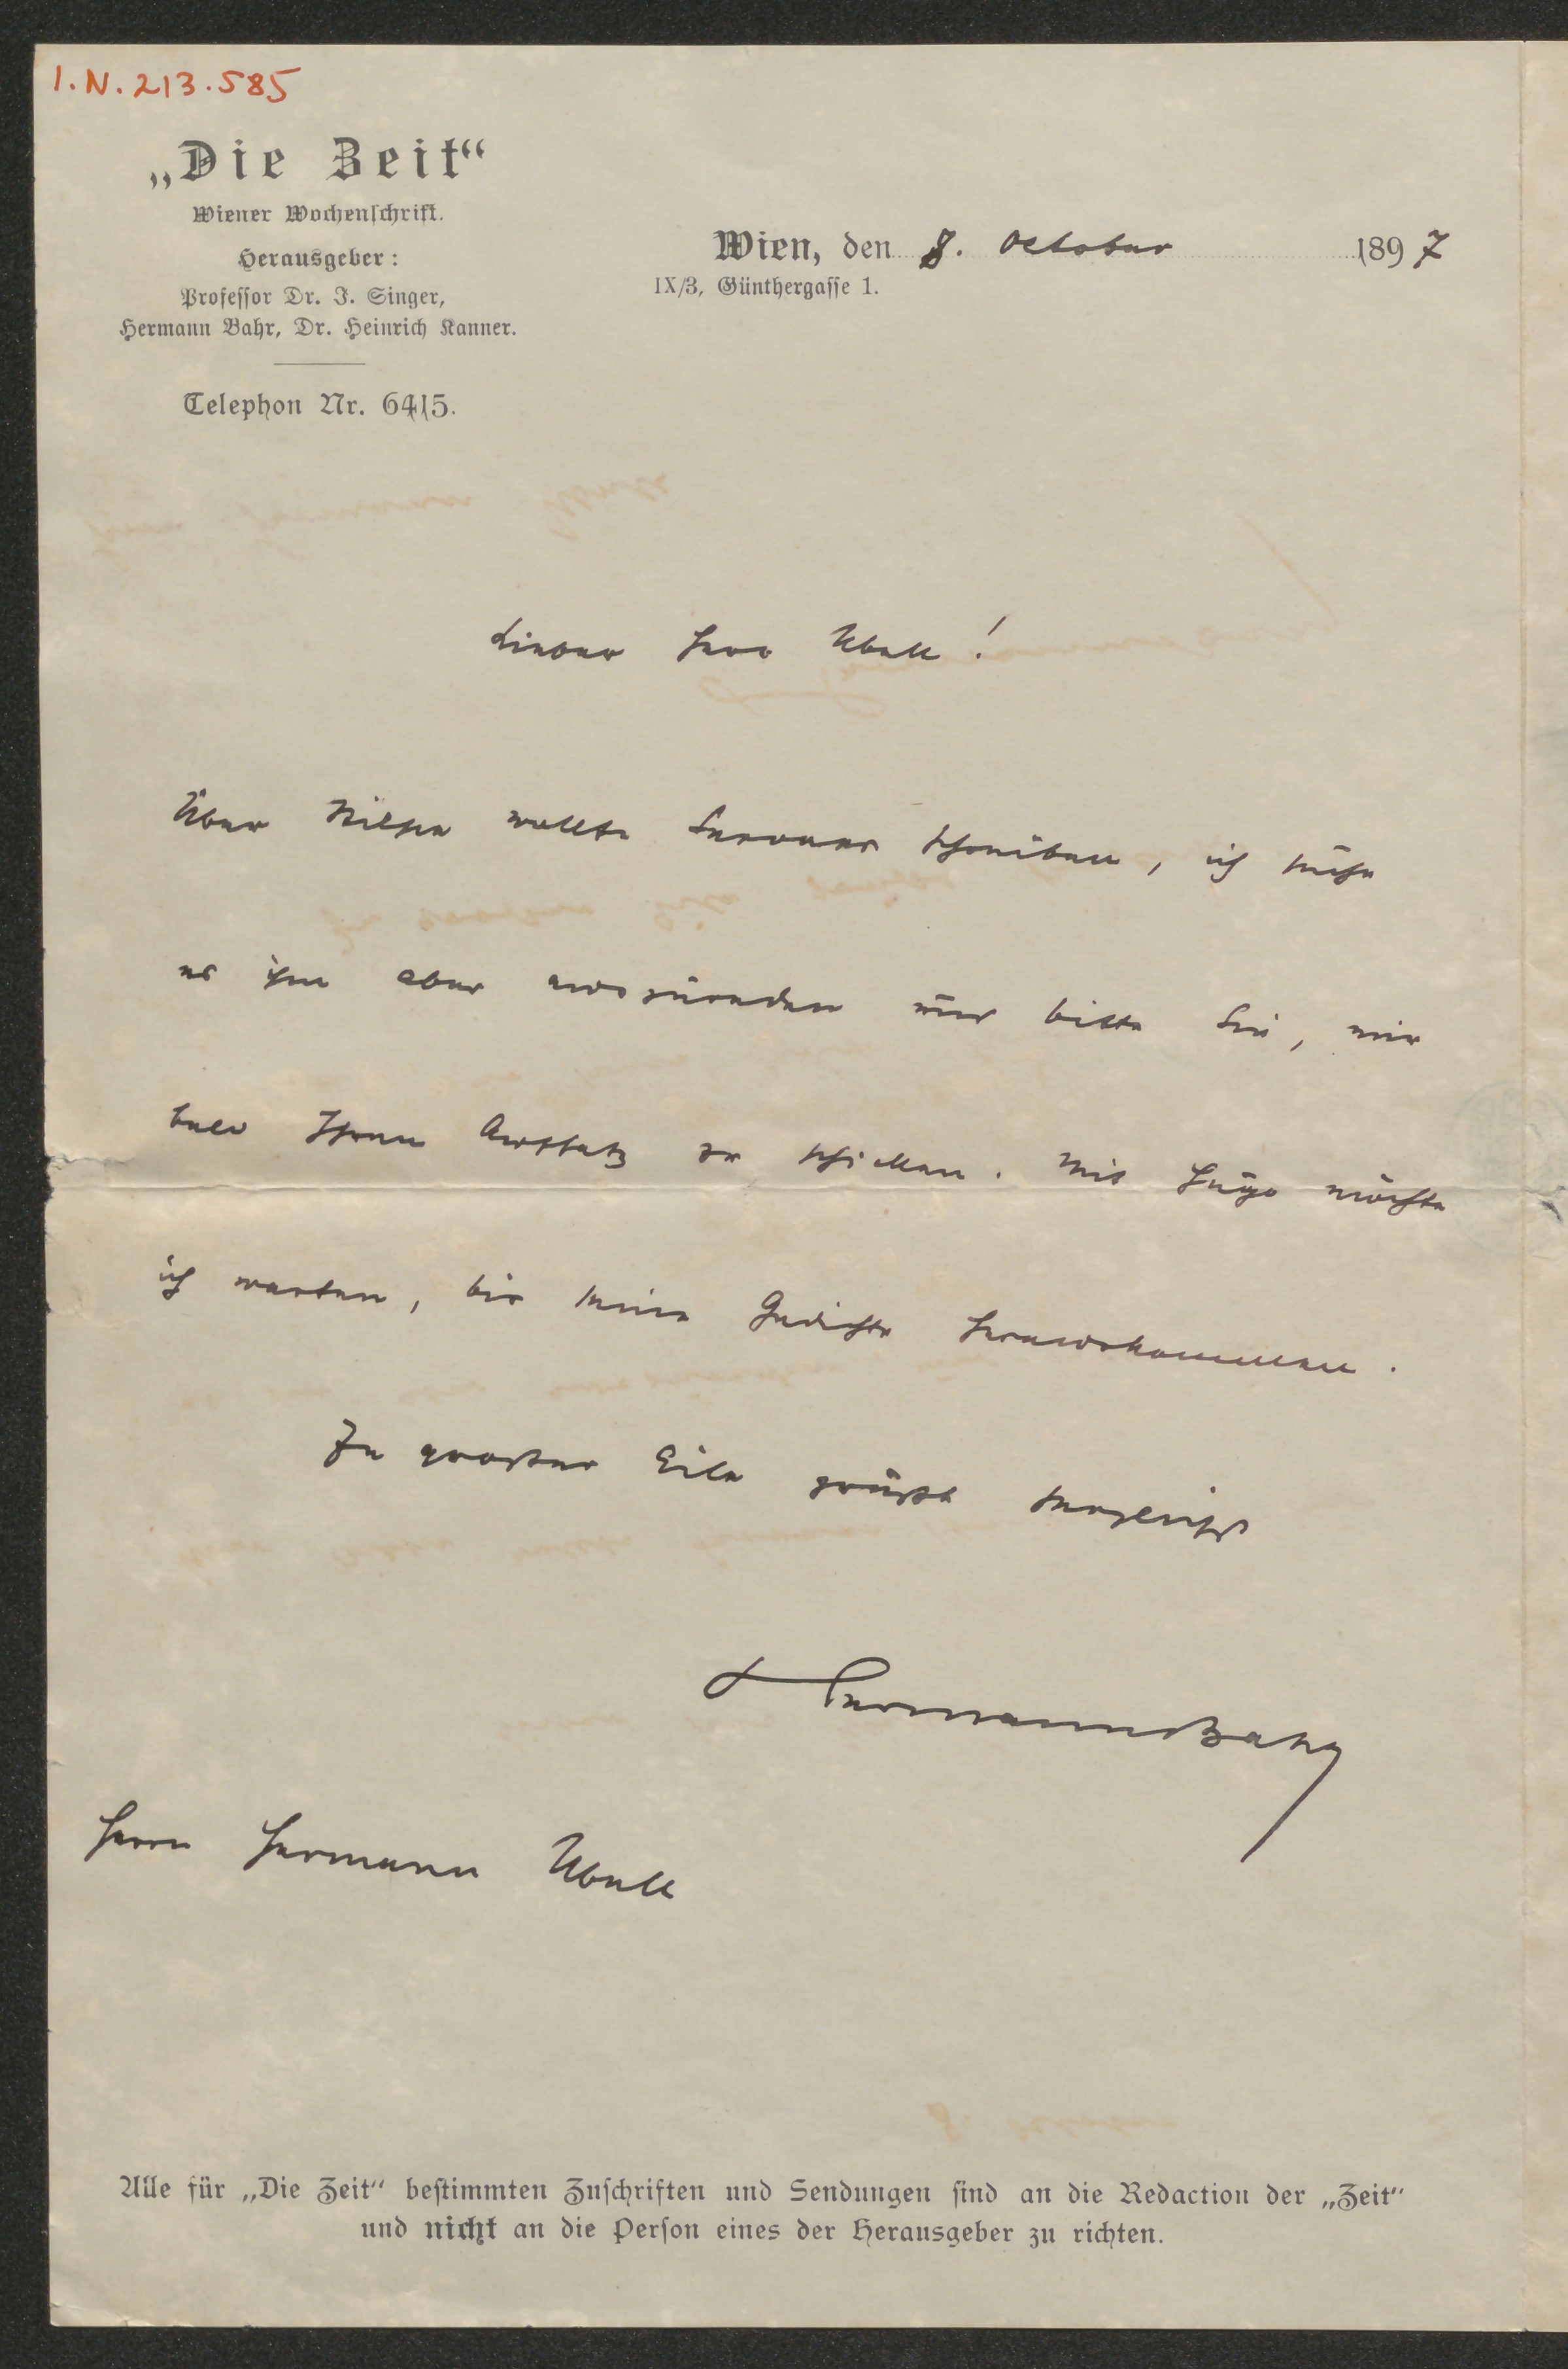 I.N. 213.585
„Die Zeit“
Wiener Wochenschrift.
Herausgeber:
Professor Dr. I. Singer,
Hermann Bahr, Dr. Heinrich Kanner.
Telephon Nr. 6415.
Wien, den 8. October 1897
IX/3, Günthergasse 1.
Lieber Herr Ubell!
Über Rilke wollte Servaes schreiben, ich suche
es ihm aber auszureden und bitte Sie, mir
bald Ihren Aufsatz zu schicken. Mit Hugo möchte
ich warten, bis seine Gedichte herauskommen.
In großer Eile grüßt herzlichst
Hermann Bahr
Herrn Hermann Ubell
Alle für „Die Zeit“ bestimmten Zuschriften und Sendungen sind an die Redaction der „Zeit“
und nicht an die Person eines der Herausgeber zu richten.